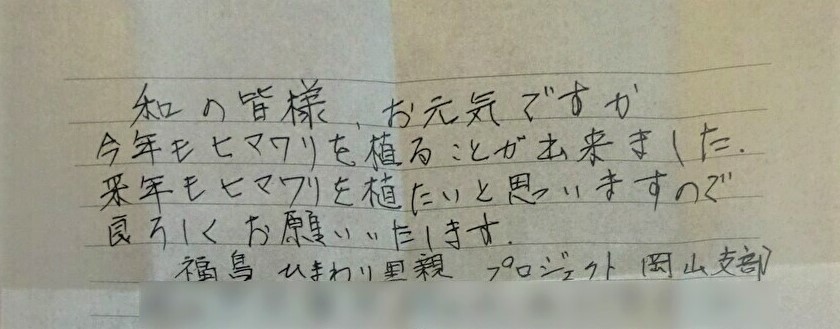 和の皆様、お元気ですか
今年もヒマワリを植ることが出来ました.
来年もヒマワリを植たいと思っいますので
良ろしくお願いいたします.
福島 ひまわり里親 プロジェクト 岡山支部